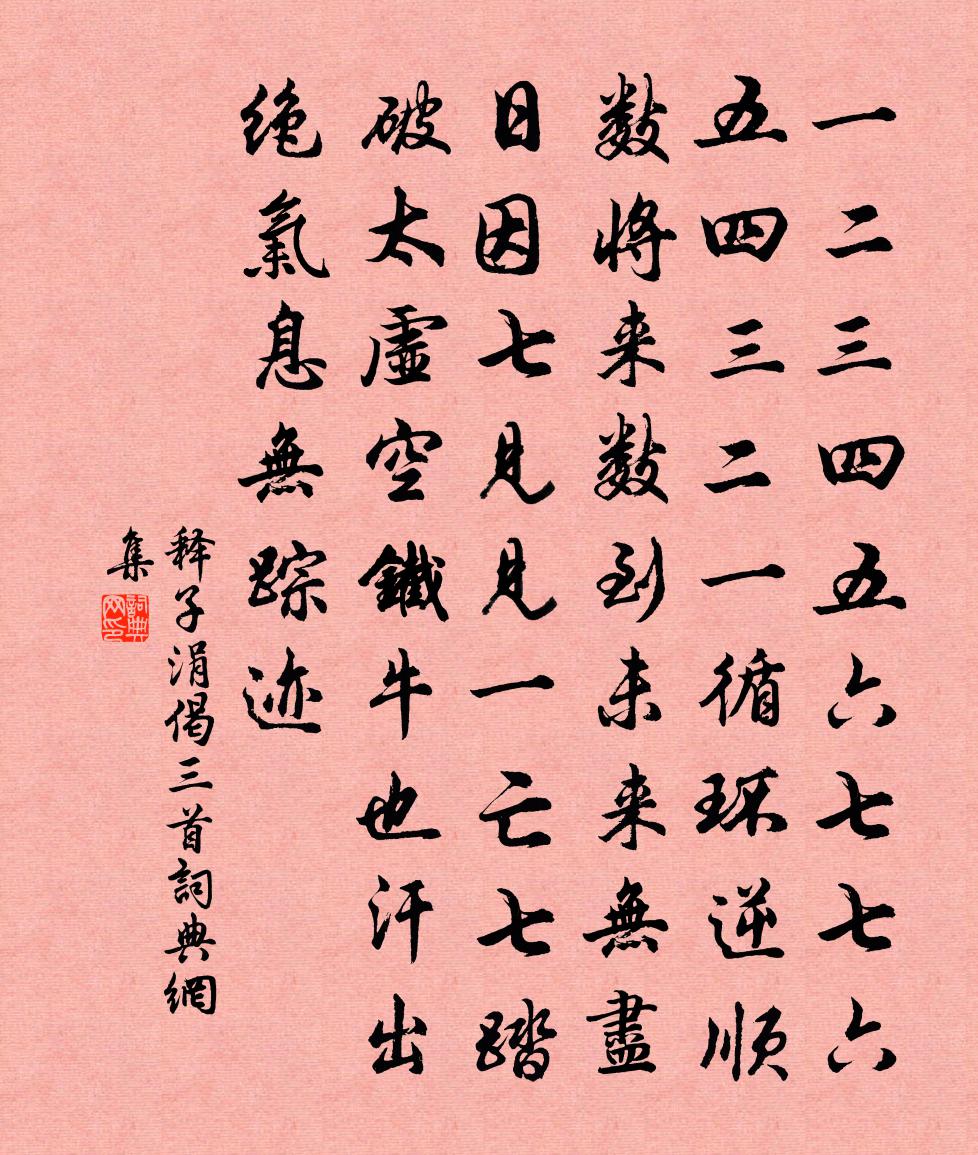 一二三四五六七七六
五四三二一循环逆顺
数将来数到未来無盡
日因七見見一亡七踏
破太虛空鐵牛也汗出
绝氣息無踪迹
释子涓偈三首詞典網
集
詞典网印